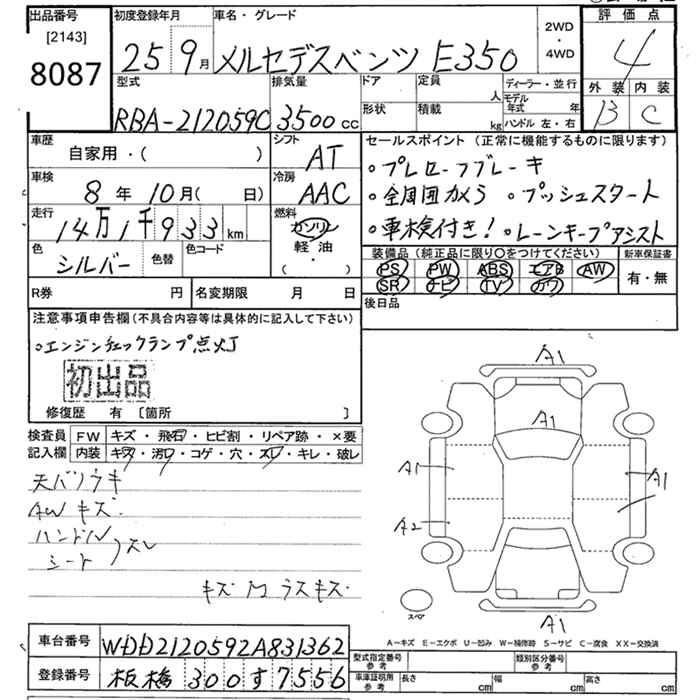 出品番号
[2143]
8087
初度登録年月
25 9月
車名・グレード
メルセデスベンツ E350
2WD
・
4WD
評価点
4
外装 内装
B C
型式
RBA-212059C
排気量
3500cc
ドア
形状
定員 人
積載 kg
ディーラー・並行
モデル年式 年
ハンドル 左・右
車歴
自家用・( )
シフト
AT
車検
8年 10月( 日)
冷房
AAC
走行
14万1千933km
燃料
ガソリン
軽油
( ・ )
色
シルバー
色替
色コード
セールスポイント (正常に機能するものに限ります)
・プレローフブレーキ
・全周囲カメラ ・プッシュスタート
・車検付き! ・レーンキープアシスト
装備品(純正品に限り○をつけてください)
PS PW ABS エアB AW
SR ナビ TV カワ
新車保証書
有・無
R券 円
名変期限 月 日
後日品
注意事項申告欄(不具合内容等は具体的に記入して下さい)
・エンジンチェックランプ点灯
初出品
修復歴 有 〔箇所 〕
検査員
記入欄
FW キズ・飛石・ヒビ割・リペア跡・×要
内装 キズ・汚レ・コゲ・穴・スレ・キレ・破レ
天バリウキ
AWキズ
ハンドル
シート スレ
キズ M ラスキズ
A1
A1
A1
A1
A2
A1
スペア
A－キズ E－エクボ U－凹み W－補修跡 S－サビ C－腐食 XX－交換済
車台番号
WDD2120592A831362
登録番号
板橋 300 す 7556
型式指定番号
参考
類別区分番号
参考
車庫証明用
参考
長さ cm
幅 cm
高さ cm